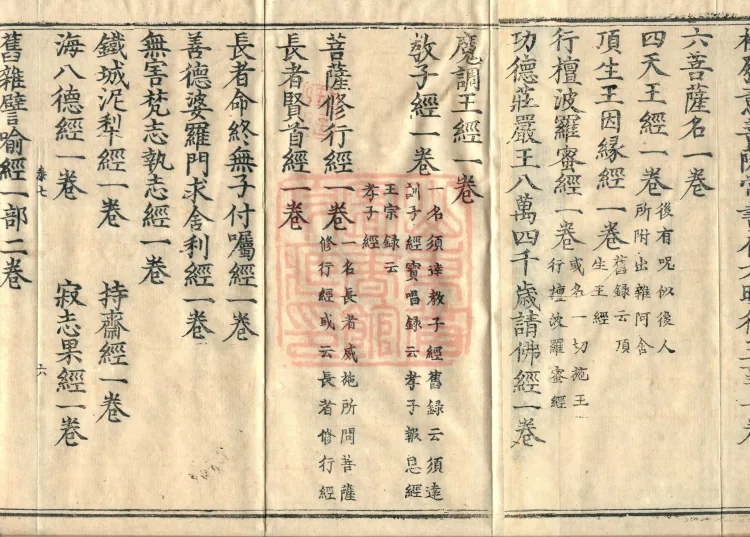 六菩薩名一卷
四天王經一卷 後有呪似後人
所附出雜阿含
頂生王因緣經一卷 舊錄云頂
生王經
行檀波羅蜜經一卷 或名一切施王
行檀波羅蜜經
功德莊嚴王八萬四千歲請佛經一卷
魔調王經一卷
教子經一卷 一名須達教子經舊錄云須達
訓子經寶唱錄云孝子報恩經
王宗錄云
孝子經
菩薩修行經一卷 一名長者威施所問菩薩
修行經或云長者修行經
長者賢首經一卷
長者命終無子付囑經一卷
善德婆羅門求舍利經一卷
無害梵志執志經一卷
鐵城泥犁經一卷 持齋經一卷
海八德經一卷 寂志果經一卷
七 六
舊雜譬喻經一部二卷